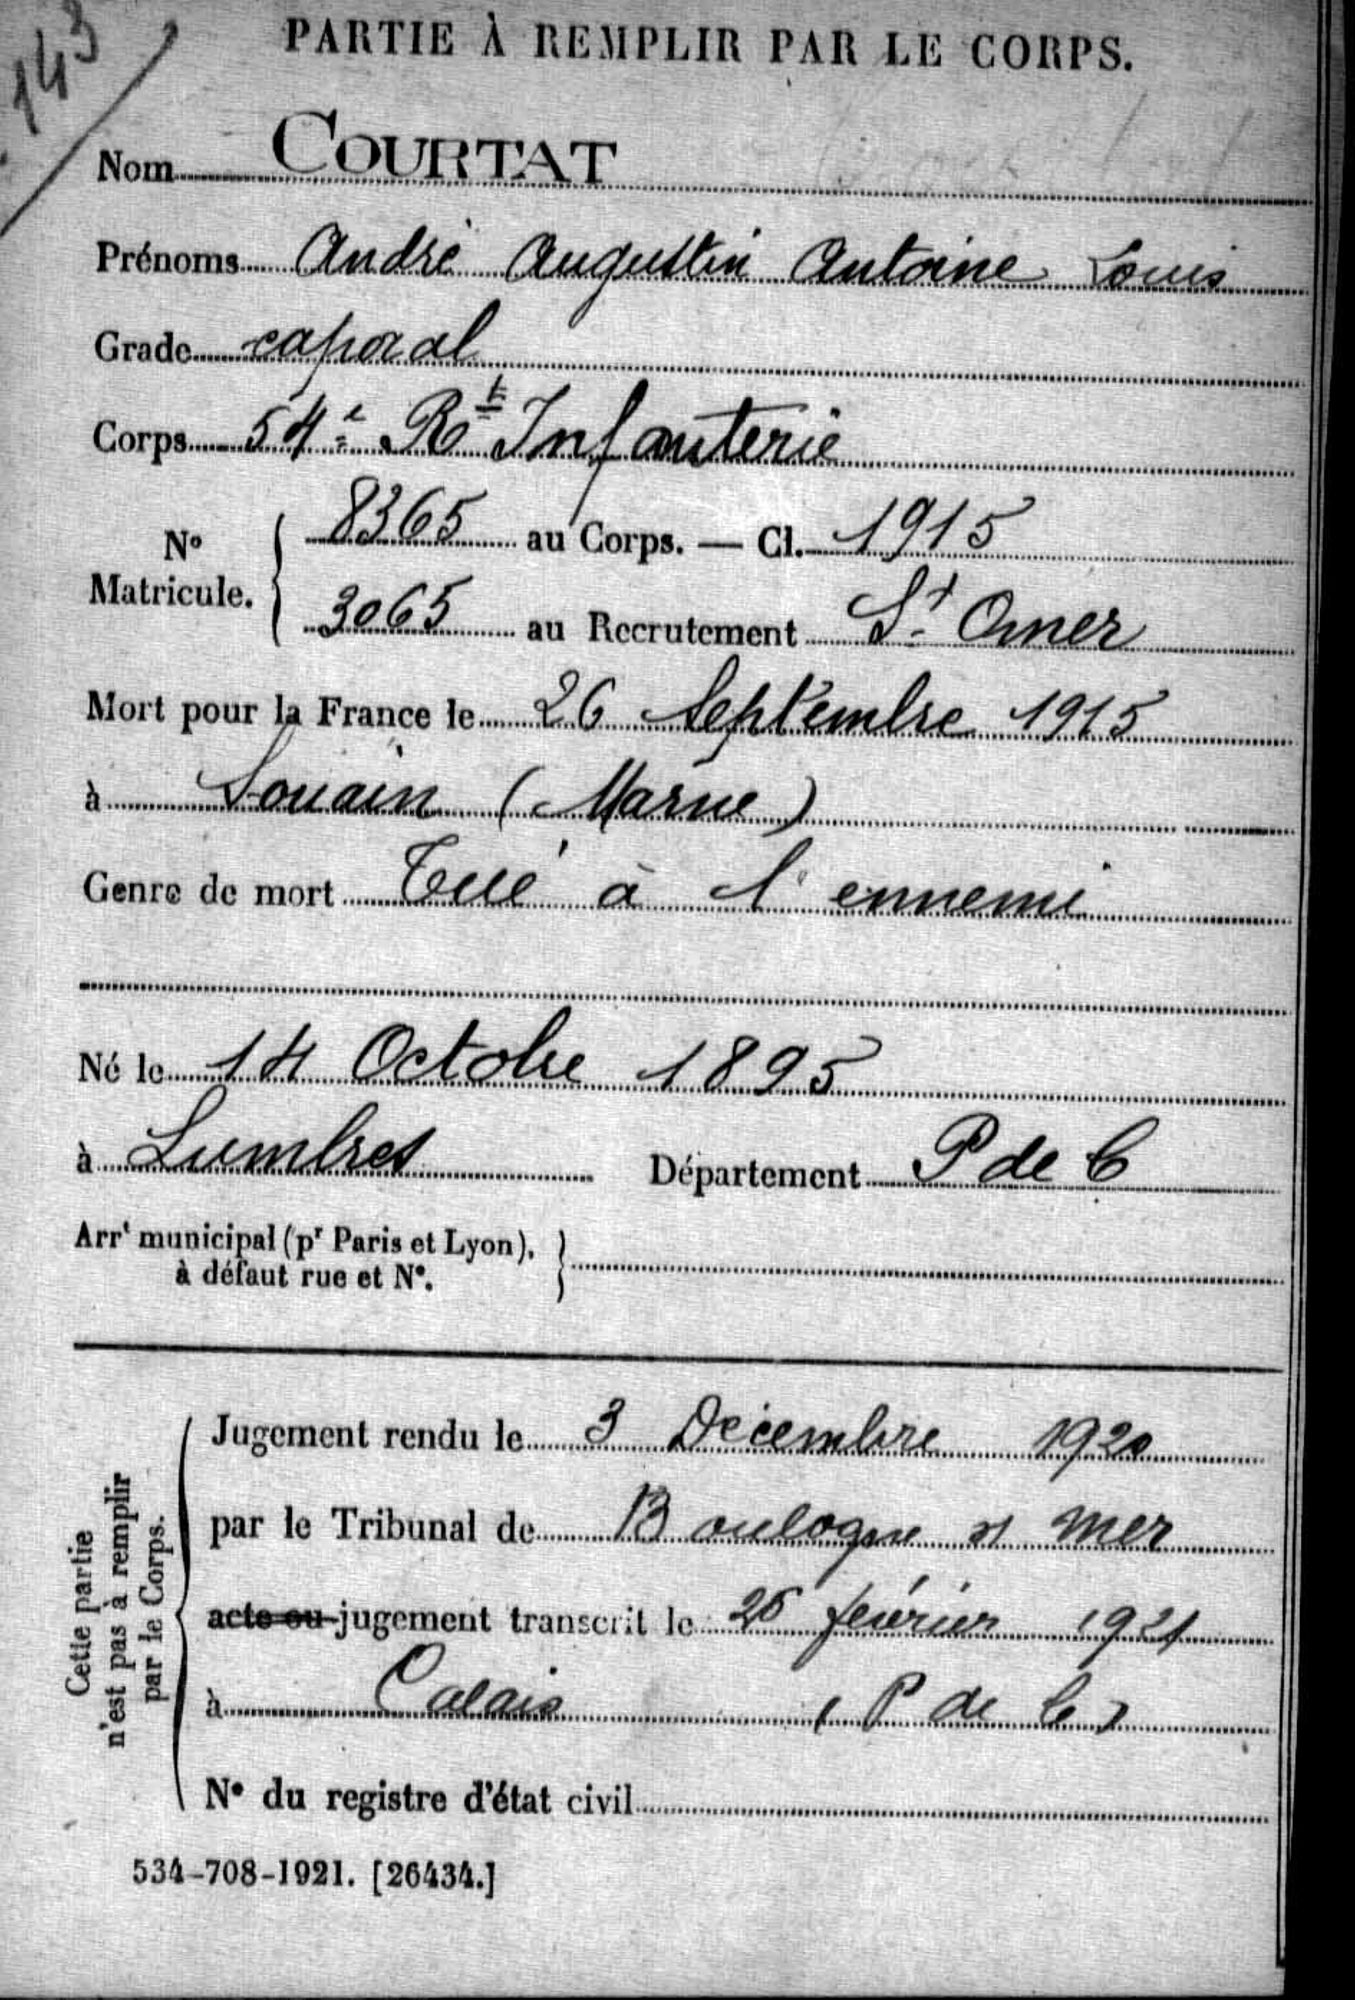 143
PARTIE À REMPLIR PAR LE CORPS.
Nom COURTAT
Prénoms André Augustin Antoine Louis
Grade caporal
Corps 54e Rt Infanterie
No Matricule. { 8365 au Corps. — Cl. 1915
3065 au Recrutement St Omer
Mort pour la France le 26 Septembre 1915
à Souain (Marne)
Genre de mort Tué à l'ennemi
Né le 14 Octobre 1895
à Lumbres Département P de C
Arrt municipal (pr Paris et Lyon), }
à défaut rue et No.
Cette partie
n'est pas à remplir
par le Corps.
Jugement rendu le 3 Décembre 1920
par le Tribunal de Boulogne s/ mer
acte ou jugement transcrit le 25 février 1921
à Calais (P de C)
No du registre d'état civil
534-708-1921. [26434.]